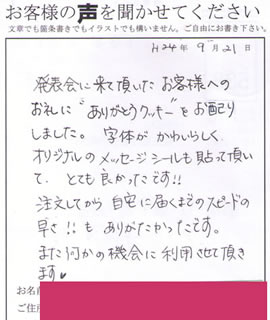 お客様の声を聞かせてください
文章でも箇条書きでもイラストでも構いません。ご自由にお書き下さい。
H24年 9月 21日
発表会に来て頂いた お客様への
お礼に "ありがとうクッキー" を お配り
しました。 字体が かわいらしく
オリジナルの メッセージシールも 貼って頂い
て、 とても 良かったです!!
注文してから 自宅に届くまでのスピードの
早さ!! も ありがたかったです。
また何かの機会に 利用させて頂き
ます♥
お名前
ご住所